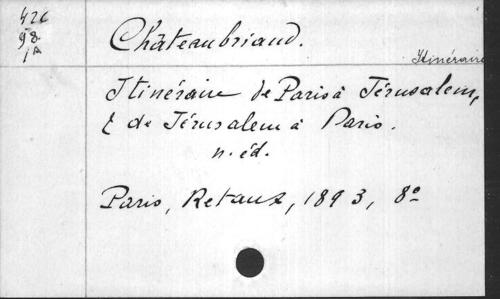 426
98
1A
Châteaubriand.
Itinéraire
Itinéraire de Paris à Jérusalem,
& de Jérusalem à Paris.
n. éd.
Paris, Retaux, 1893, 8º